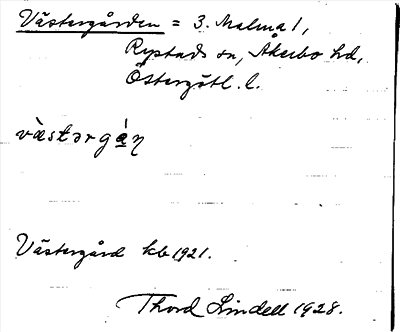 Västergården = 3. Malma 1,
Rystads sn, Åkerbo hd,
Östergötl. l.
vàstərgá̱ɳ
Västergård kb 1921.
Thord Lindell 1928.